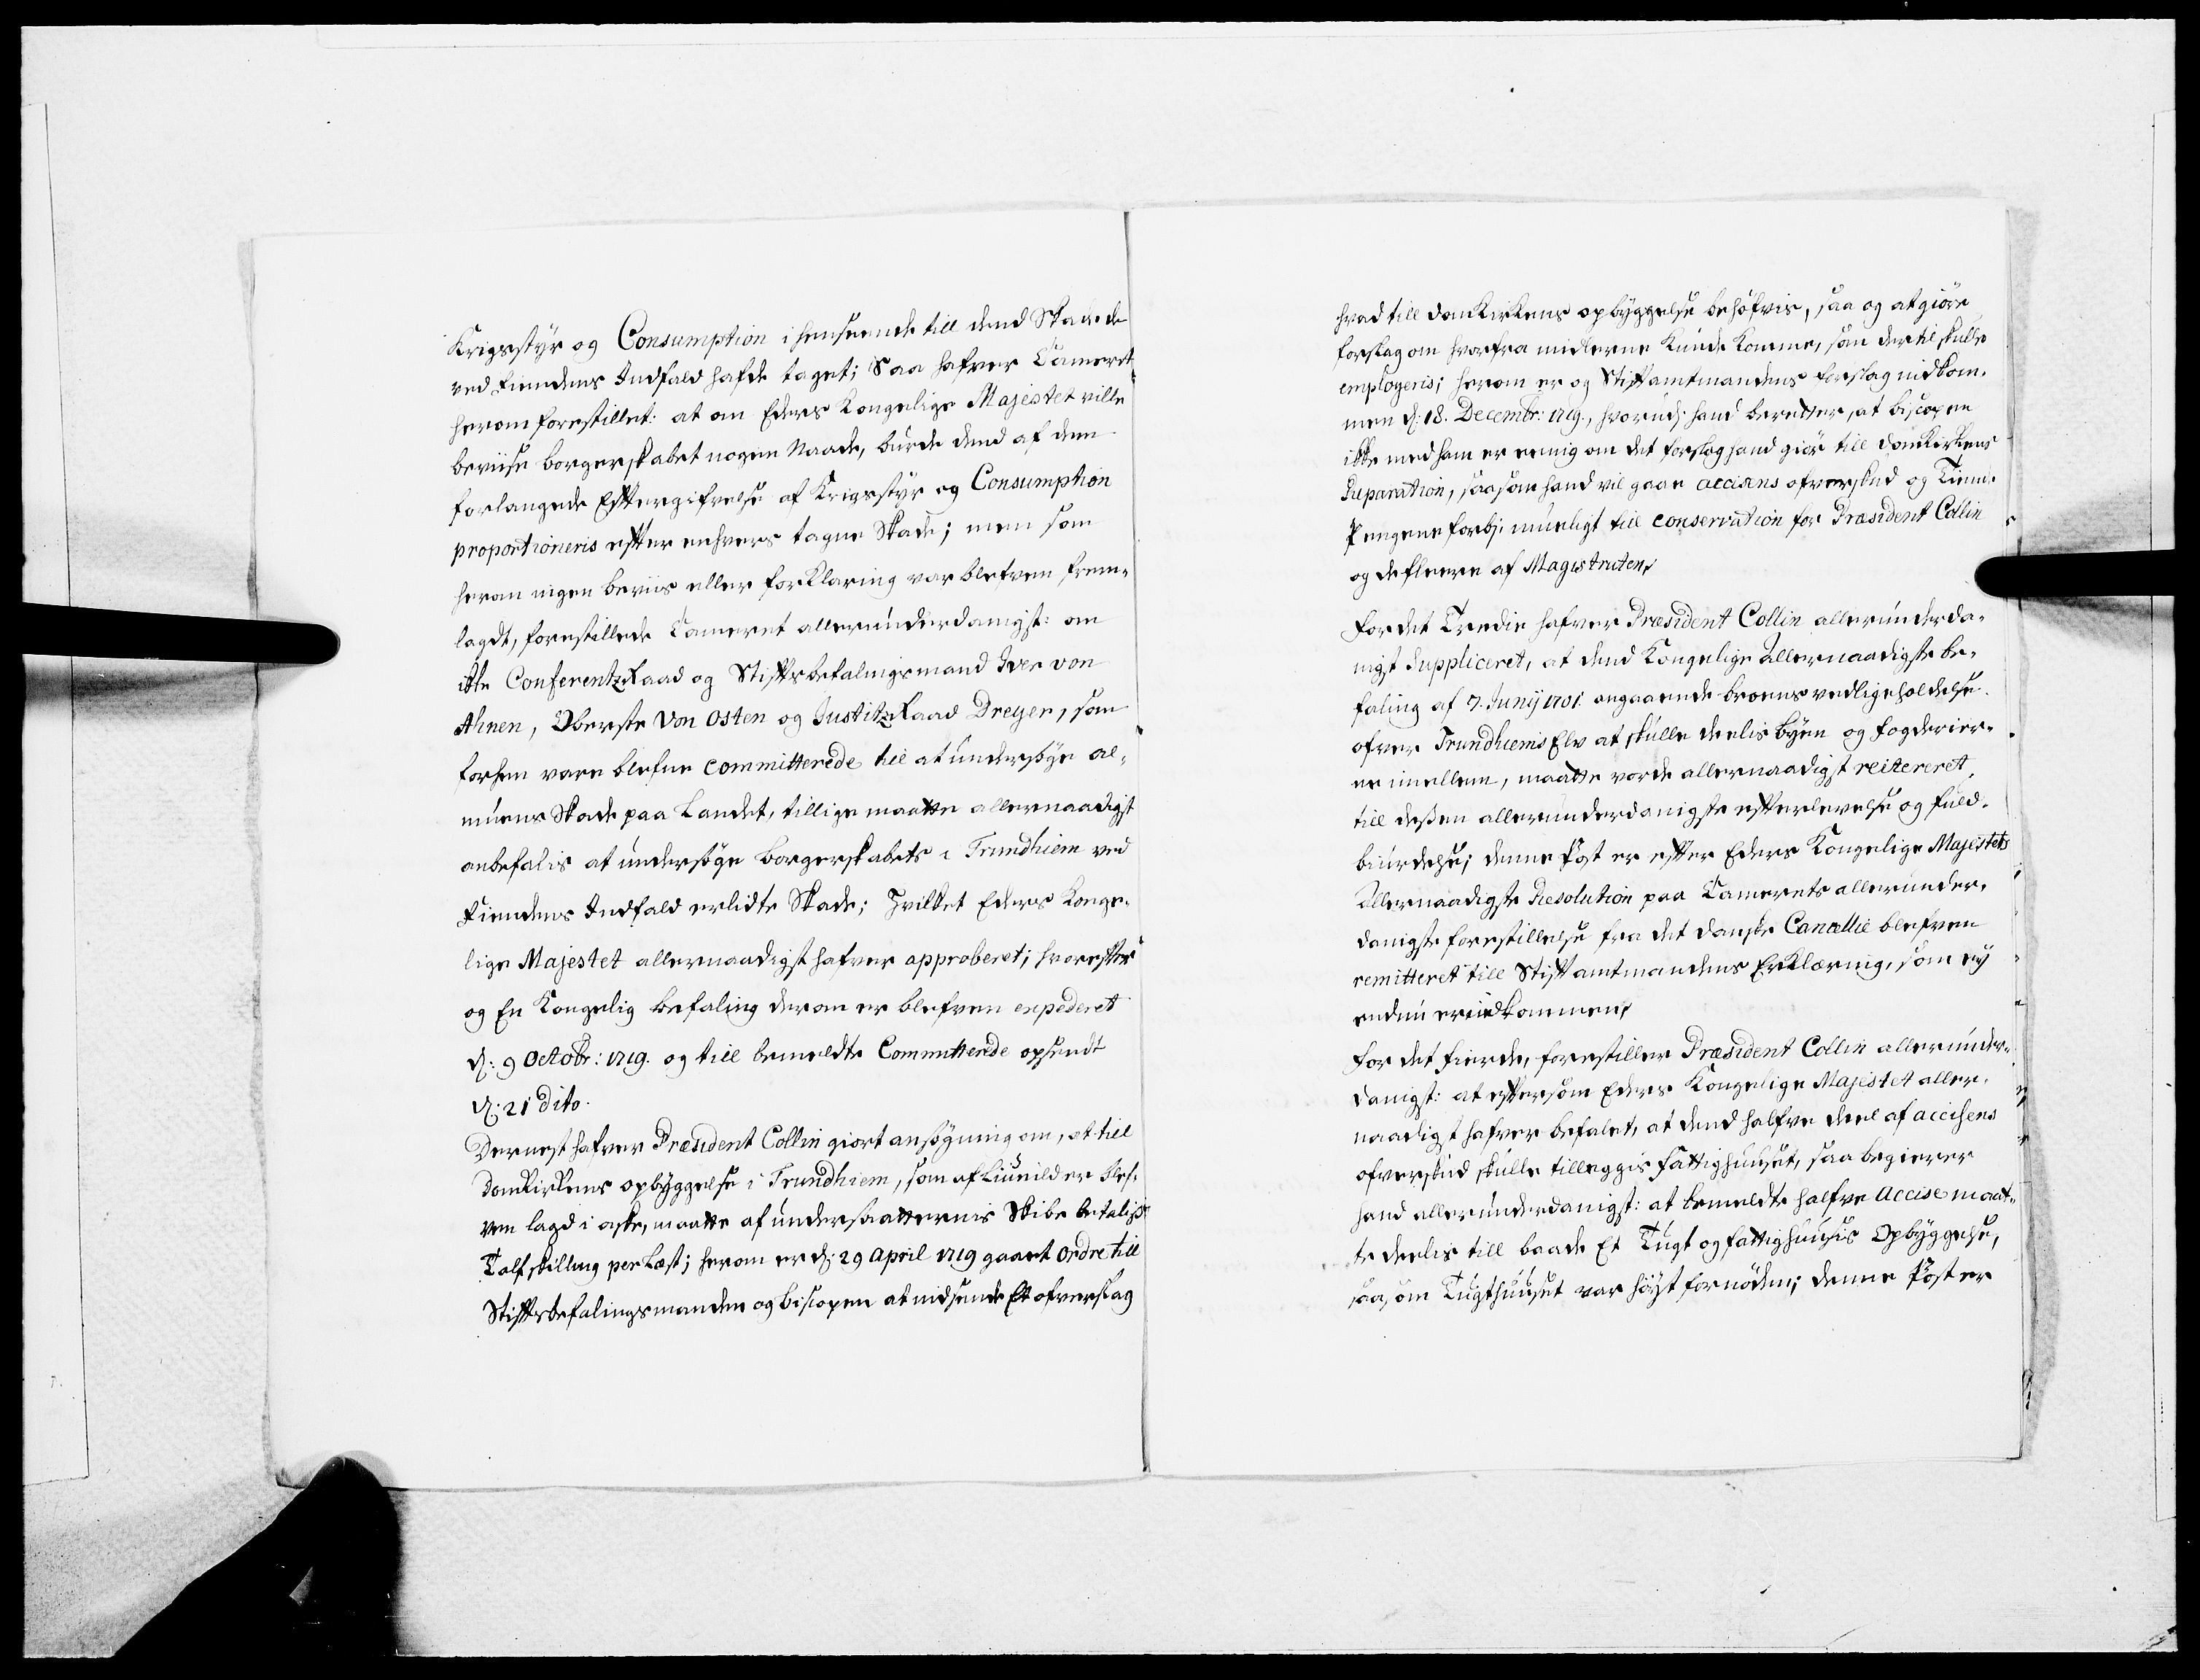 Krigsstyr og Consumption i henseende till dend Skade de
ved Fiendens Indfald hafde taget; Saa hafver Cameret
herom forestillet: at om Eders Kongelige Majestet ville
beviise borgerskabet nogen Naade, burde dend af dem
forlangede Eftergifvelse af Krigsstyr og Consumption
proportioneris efter enhvers tagne Skade; men som
herom ingen beviis eller forklaring var blefven frem-
lagdt, forestillede Cameret allerunderdanigst: om
ikke ConferentzRaad og Stiftsbefalingsmand Iver von
Ahnen, Oberste Von Osten og JustitzRaad Dreyer, som
forhen vare blefne committerede till at undersøge al-
muens Skade paa Landet, tillige maatte allernaadigst
anbefalis at undersøge borgerskabets i Trundhiem ved
Fiendens Indfald erlidte Skade; Hvilket Eders Konge-
lige Majestet allernaadigst hafver approberet; hvorefter
og En Kongelig befaling derom er blefven expederet
d: 9 Octobr: 1719. og till bemeldte Committerede opsendt
d: 21 dito.
Dernest hafver Præsident Collin giort ansøgning om, at till
domkirkens opbyggelse i Trundhiem, som af Liunild er blef-
ven lagd i aske, maatte af undersaatternis Skibe betalis
Tolf skilling per Læst; herom er d: 29 April 1719 gaaet Ordre till
Stiftsbefalingsmanden og biscopen at indsende Et ofverslag
hvad till domkirkens opbyggelse behøfvis, saa og at giøre
forslag om hvorfra midlerne kunde komme, som dertil skulle
employeris; herom er og Stiftamtmandens forslag indkom-
men d: 18. Decembr: 1719., hvorudj hand beretter, at biscopen
ikke med ham er eenig om det forslag hand giør till domkirkens
Reparation, saasom hand vil gaae accisens ofverskud og Tiende
Pengene forbj. mueligt till conservation for Præsident Collin
og de fleere af Magistraten,
For det Tredie hafver Præsident Collin allerunderda-
nigst suppliceret, at dend Kongelige Allernaadigste be-
faling af 7. Junij 1701. angaaende broens vedligeholdelse
ofver Trundhiems Elv at skulle deelis byen og fogderier-
ne imellem, maatte vorde allernaadigst reitereret,
till dessen allerunderdanigste efterlevelse og fuld-
biurdelse; denne Post er efter Eders Kongelige Majestets
Allernaadigste Resolution paa Camerets allerunder-
danigste forestillelse fra det danske Cancellie blefven
remitteret till Stiftamtmandens Erklæring, som ey
endnu er indkommen,
For det fierde, forestiller Præsident Collin allerunder-
danigst: at eftersom Eders Kongelige Majestet aller-
naadigst hafver befalet, at dend halfve deel af accisens
ofverskud skulle tilleggis fattighuuset, saa begierer
hand allerunderdanigst: at bemeldte halfve Accise maat-
te deelis till baade Et Tugt og fattighuusis Opbyggelse,
saasom Tugthuuset var høyst fornøden; denne Post er